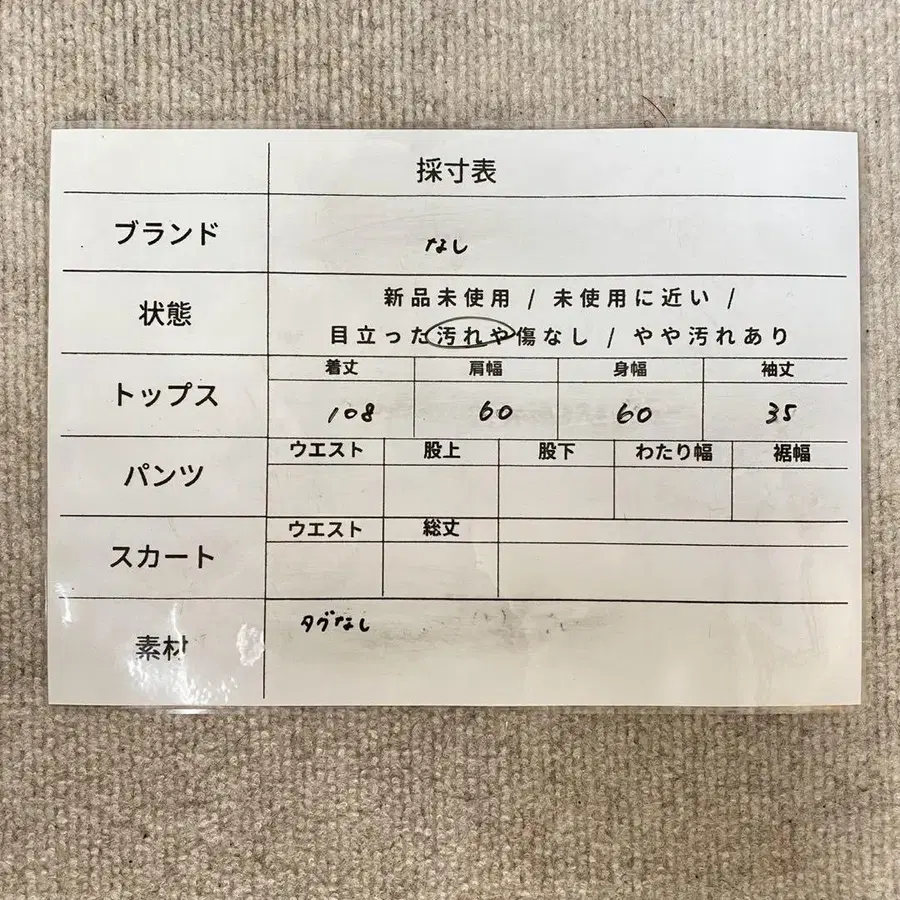 採寸表
ブランド
なし
状態
新品未使用 / 未使用に近い /
目立った汚れや傷なし / やや汚れあり
トップス
着丈 肩幅 身幅 袖丈
108 60 60 35
パンツ
ウエスト 股上 股下 わたり幅 裾幅
スカート
ウエスト 総丈
素材
タグなし